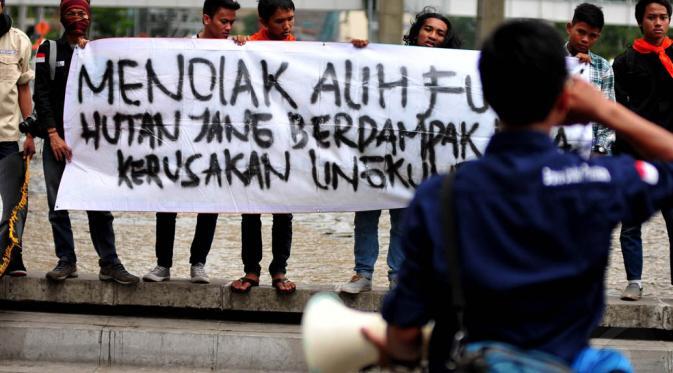 MENOLAK ALIH FU
HUTAN YANG BERDAMPAK
KERUSAKAN LINGKU